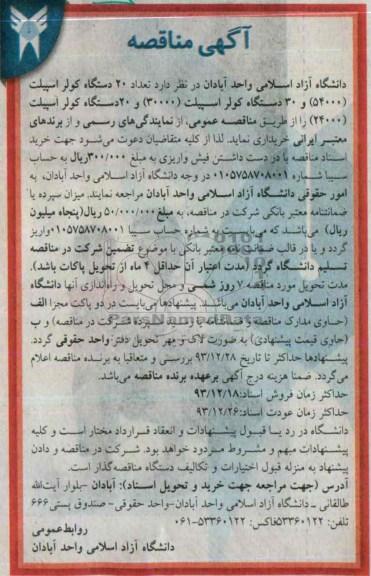 آگهی مناقصه
دانشگاه آزاد اسلامی واحد آبادان در نظر دارد تعداد ۲۰ دستگاه کولر اسپیلت
(۵۴۰۰۰) و ۳۰ دستگاه کولر اسپیلت (۳۰۰۰۰) و ۲۰دستگاه کولر اسپیلت
(۲۴۰۰۰) را از طریق مناقصه عمومی، از نمایندگی‌های رسمی و از برندهای
معتبر ایرانی خریداری نماید. لذا از کلیه متقاضیان دعوت می‌شود جهت خرید
اسناد مناقصه با در دست داشتن فیش واریزی به مبلغ ۳۰۰/۰۰۰ریال به حساب
سیبا شماره ۰۱۰۵۷۵۸۷۰۸۰۰۱ در وجه دانشگاه آزاد اسلامی واحد آبادان، به
امور حقوقی دانشگاه آزاد اسلامی واحد آبادان مراجعه نمایند. میزان سپرده یا
ضمانتنامه معتبر بانکی شرکت در مناقصه، به مبلغ ۵۰/۰۰۰/۰۰۰ ریال(پنجاه میلیون
ریال) می‌باشند که می‌بایست به شماره حساب سیبا ۰۱۰۵۷۵۸۷۰۸۰۰۱واریز
گردد و یا در قالب ضمانت‌نامه معتبر بانکی با موضوع تضمین شرکت در مناقصه
تسلیم دانشگاه گردد (مدت اعتبار آن حداقل ۲ ماه از تحویل پاکات باشد).
مدت تحویل مورد مناقصه ۷ روز شمسی و محل تحویل و راه‌اندازی آنها دانشگاه
آزاد اسلامی واحد آبادان می‌باشد. پیشنهادها می‌بایست در دو پاکت مجزا الف
(حاوی مدارک مناقصه و ضمانتنامه یا رسید سپرده شرکت در مناقصه) و ب
(حاوی قیمت پیشنهادی) به صورت لاک و مهر تحویل دفتر واحد حقوقی گردد.
پیشنهادها حداکثر تا تاریخ ۹۳/۱۲/۲۸ بررسی و متعاقبا به برنده مناقصه اعلام
می‌گردد. ضمنا هزینه درج آگهی برعهده برنده مناقصه می‌باشد.
حداکثر زمان فروش اسناد: ۹۳/۱۲/۱۸
حداکثر زمان عودت اسناد: ۹۳/۱۲/۲۶
دانشگاه در رد یا قبول پیشنهادات و انعقاد قرارداد مختار است و کلیه
پیشنهادات مبهم و مشروط مردود خواهد بود. شرکت در مناقصه و دادن
پیشنهاد به منزله قبول اختیارات و تکالیف دستگاه مناقصه‌گذار است.
آدرس (جهت مراجعه جهت خرید و تحویل اسناد): آبادان -بلوار آیت‌الله
طالقانی ـ دانشگاه آزاد اسلامی واحد آبادان-واحد حقوقی- صندوق پستی ۶۶۶
تلفن: ۵۳۳۶۰۱۲۲فاکس: ۵۳۳۶۰۱۲۲-۰۶۱
روابط عمومی
دانشگاه آزاد اسلامی واحد آبادان